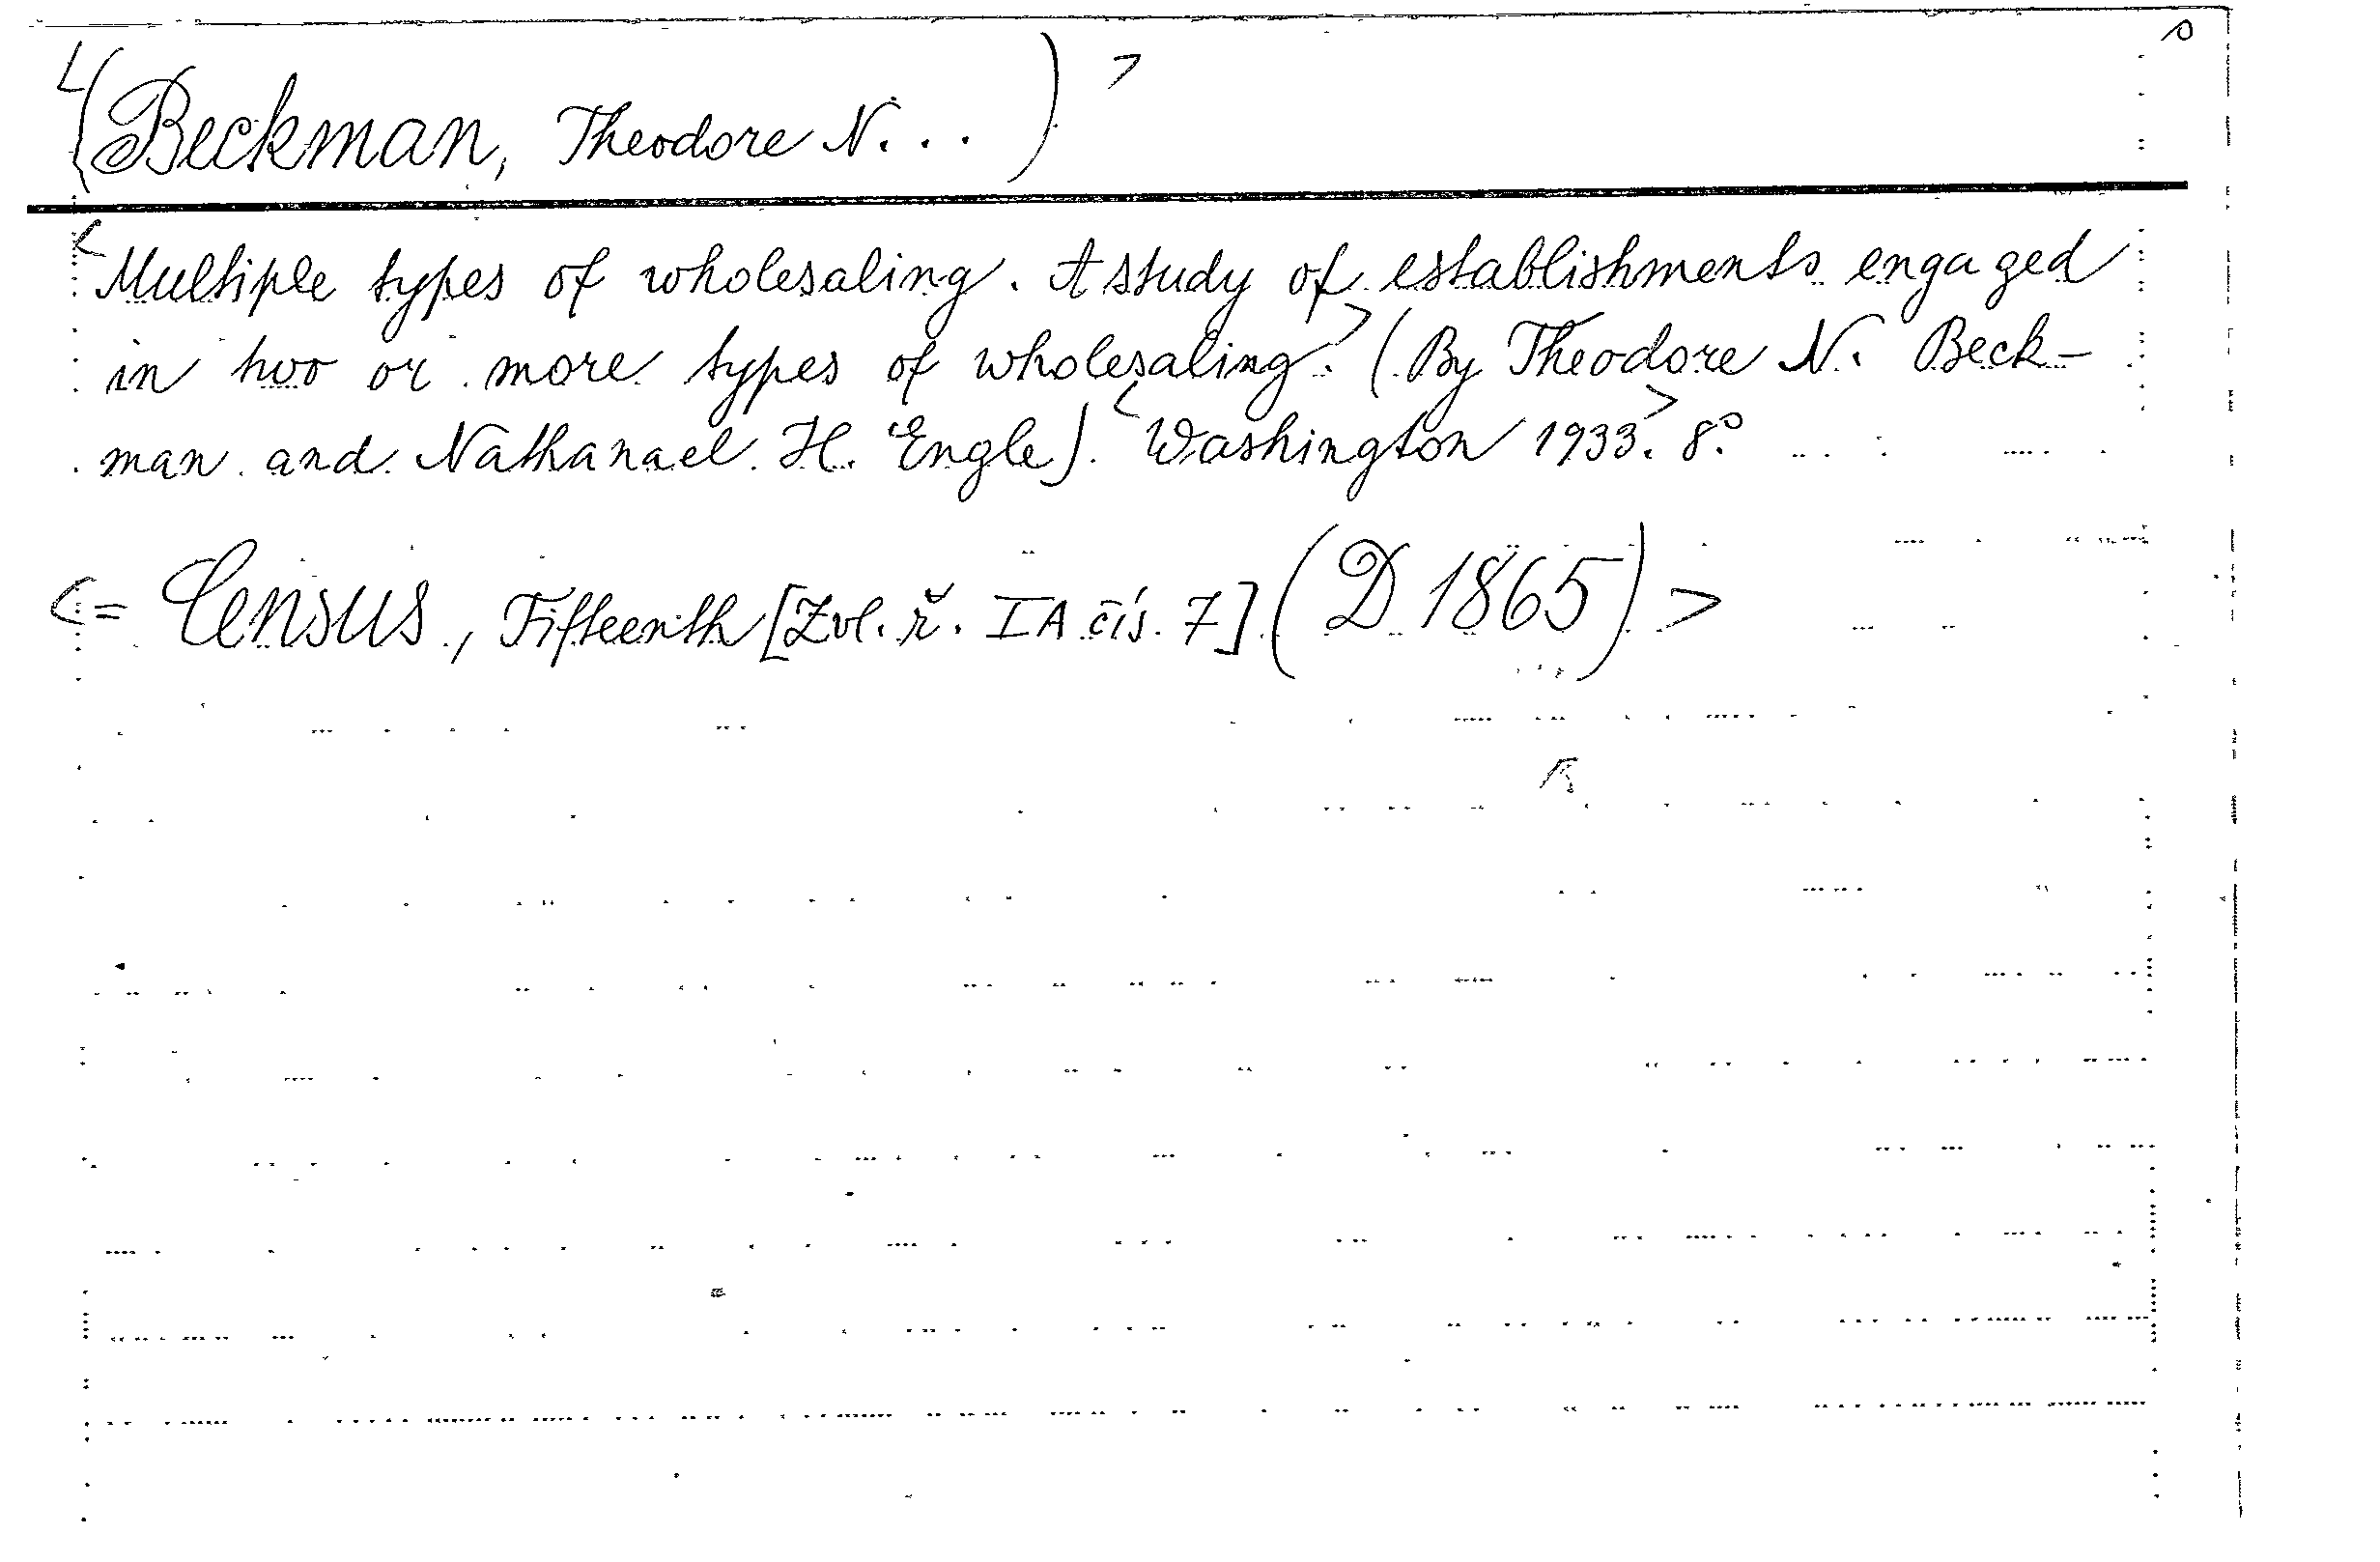 <(Beckman, Theodore N...)>
<Multiple types of wholesaling. A study of establishments engaged
in two or more types of wholesaling.> (By Theodore N. Beck-
man and Nathanael H. Engle). <Washington 1933.> 8°.
<= Census, Fifteenth [Zvl. ř. IA čís. 7] (D 1865)>